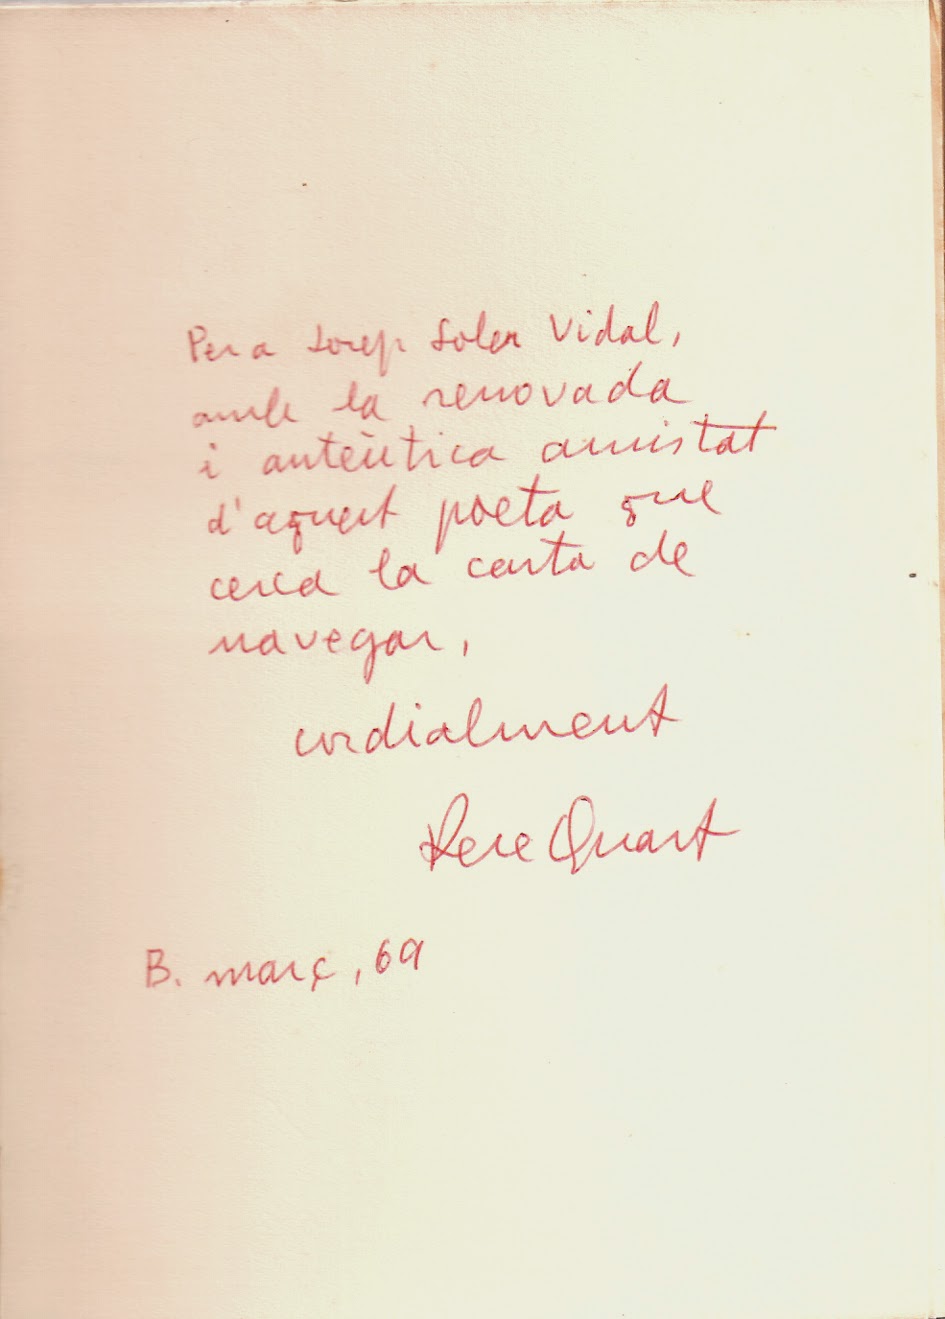 Per a Josep Soler Vidal,
amb la renovada
i autèntica amistat
d'aquest poeta que
cerca la carta de
navegar,
cordialment
Pere Quart
B. març, 69